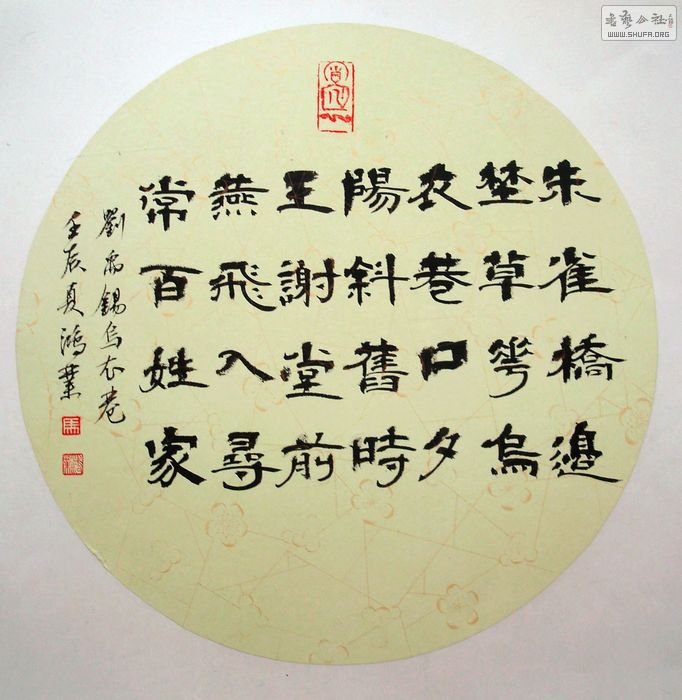 朱雀橋邊
埜草花烏
衣巷口夕
陽斜舊時
王謝堂前
燕飛入尋
常百姓家
劉禹錫烏衣巷
壬辰夏鴻業
書藝公社
WWW.SHUFA.ORG